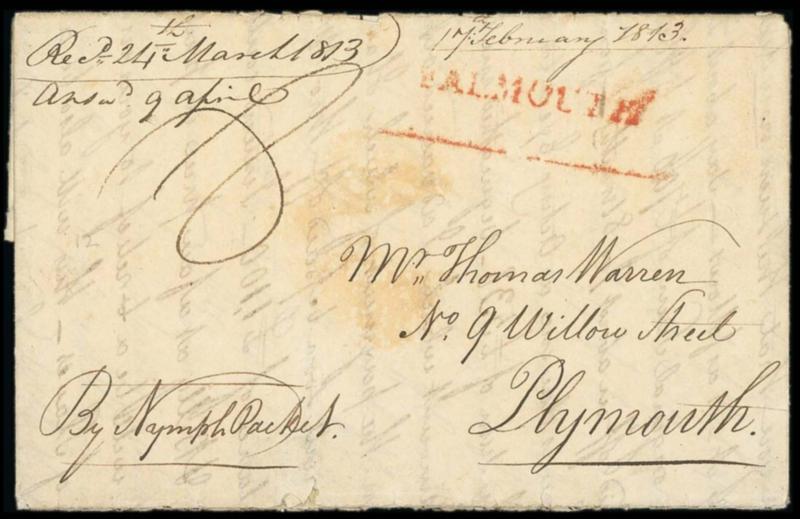 Recd. 24th. March 1813
17th February 1813.
Answd 9 April
FALMOUTH
8
12
Mr. Thomas Warren
No. 9 Willow Street
Plymouth.
By Nymph Packet.